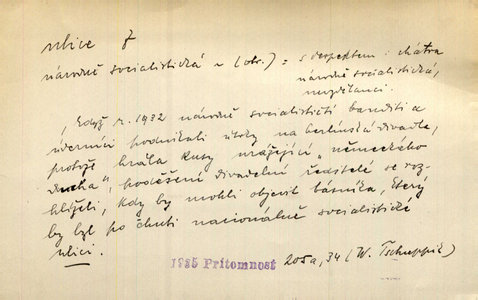 ulice f
národně socialistická ~ (obr.) = s despektem: chátra
národně socialistická,
nevzdělanci.
„Když r. 1932 národně socialističtí banditi a
úderníci podnikali útoky na berlínská divadla,
protože hrála kusy urážející „německého
ducha", poděšení divadelní ředitelé se roz-
hlíželi, kdy by mohli objevit básníka, který
by byl po chuti nacionálně socialistické
ulici.
1935 Přítomnost 205a, 34 (W. Tschuppik)